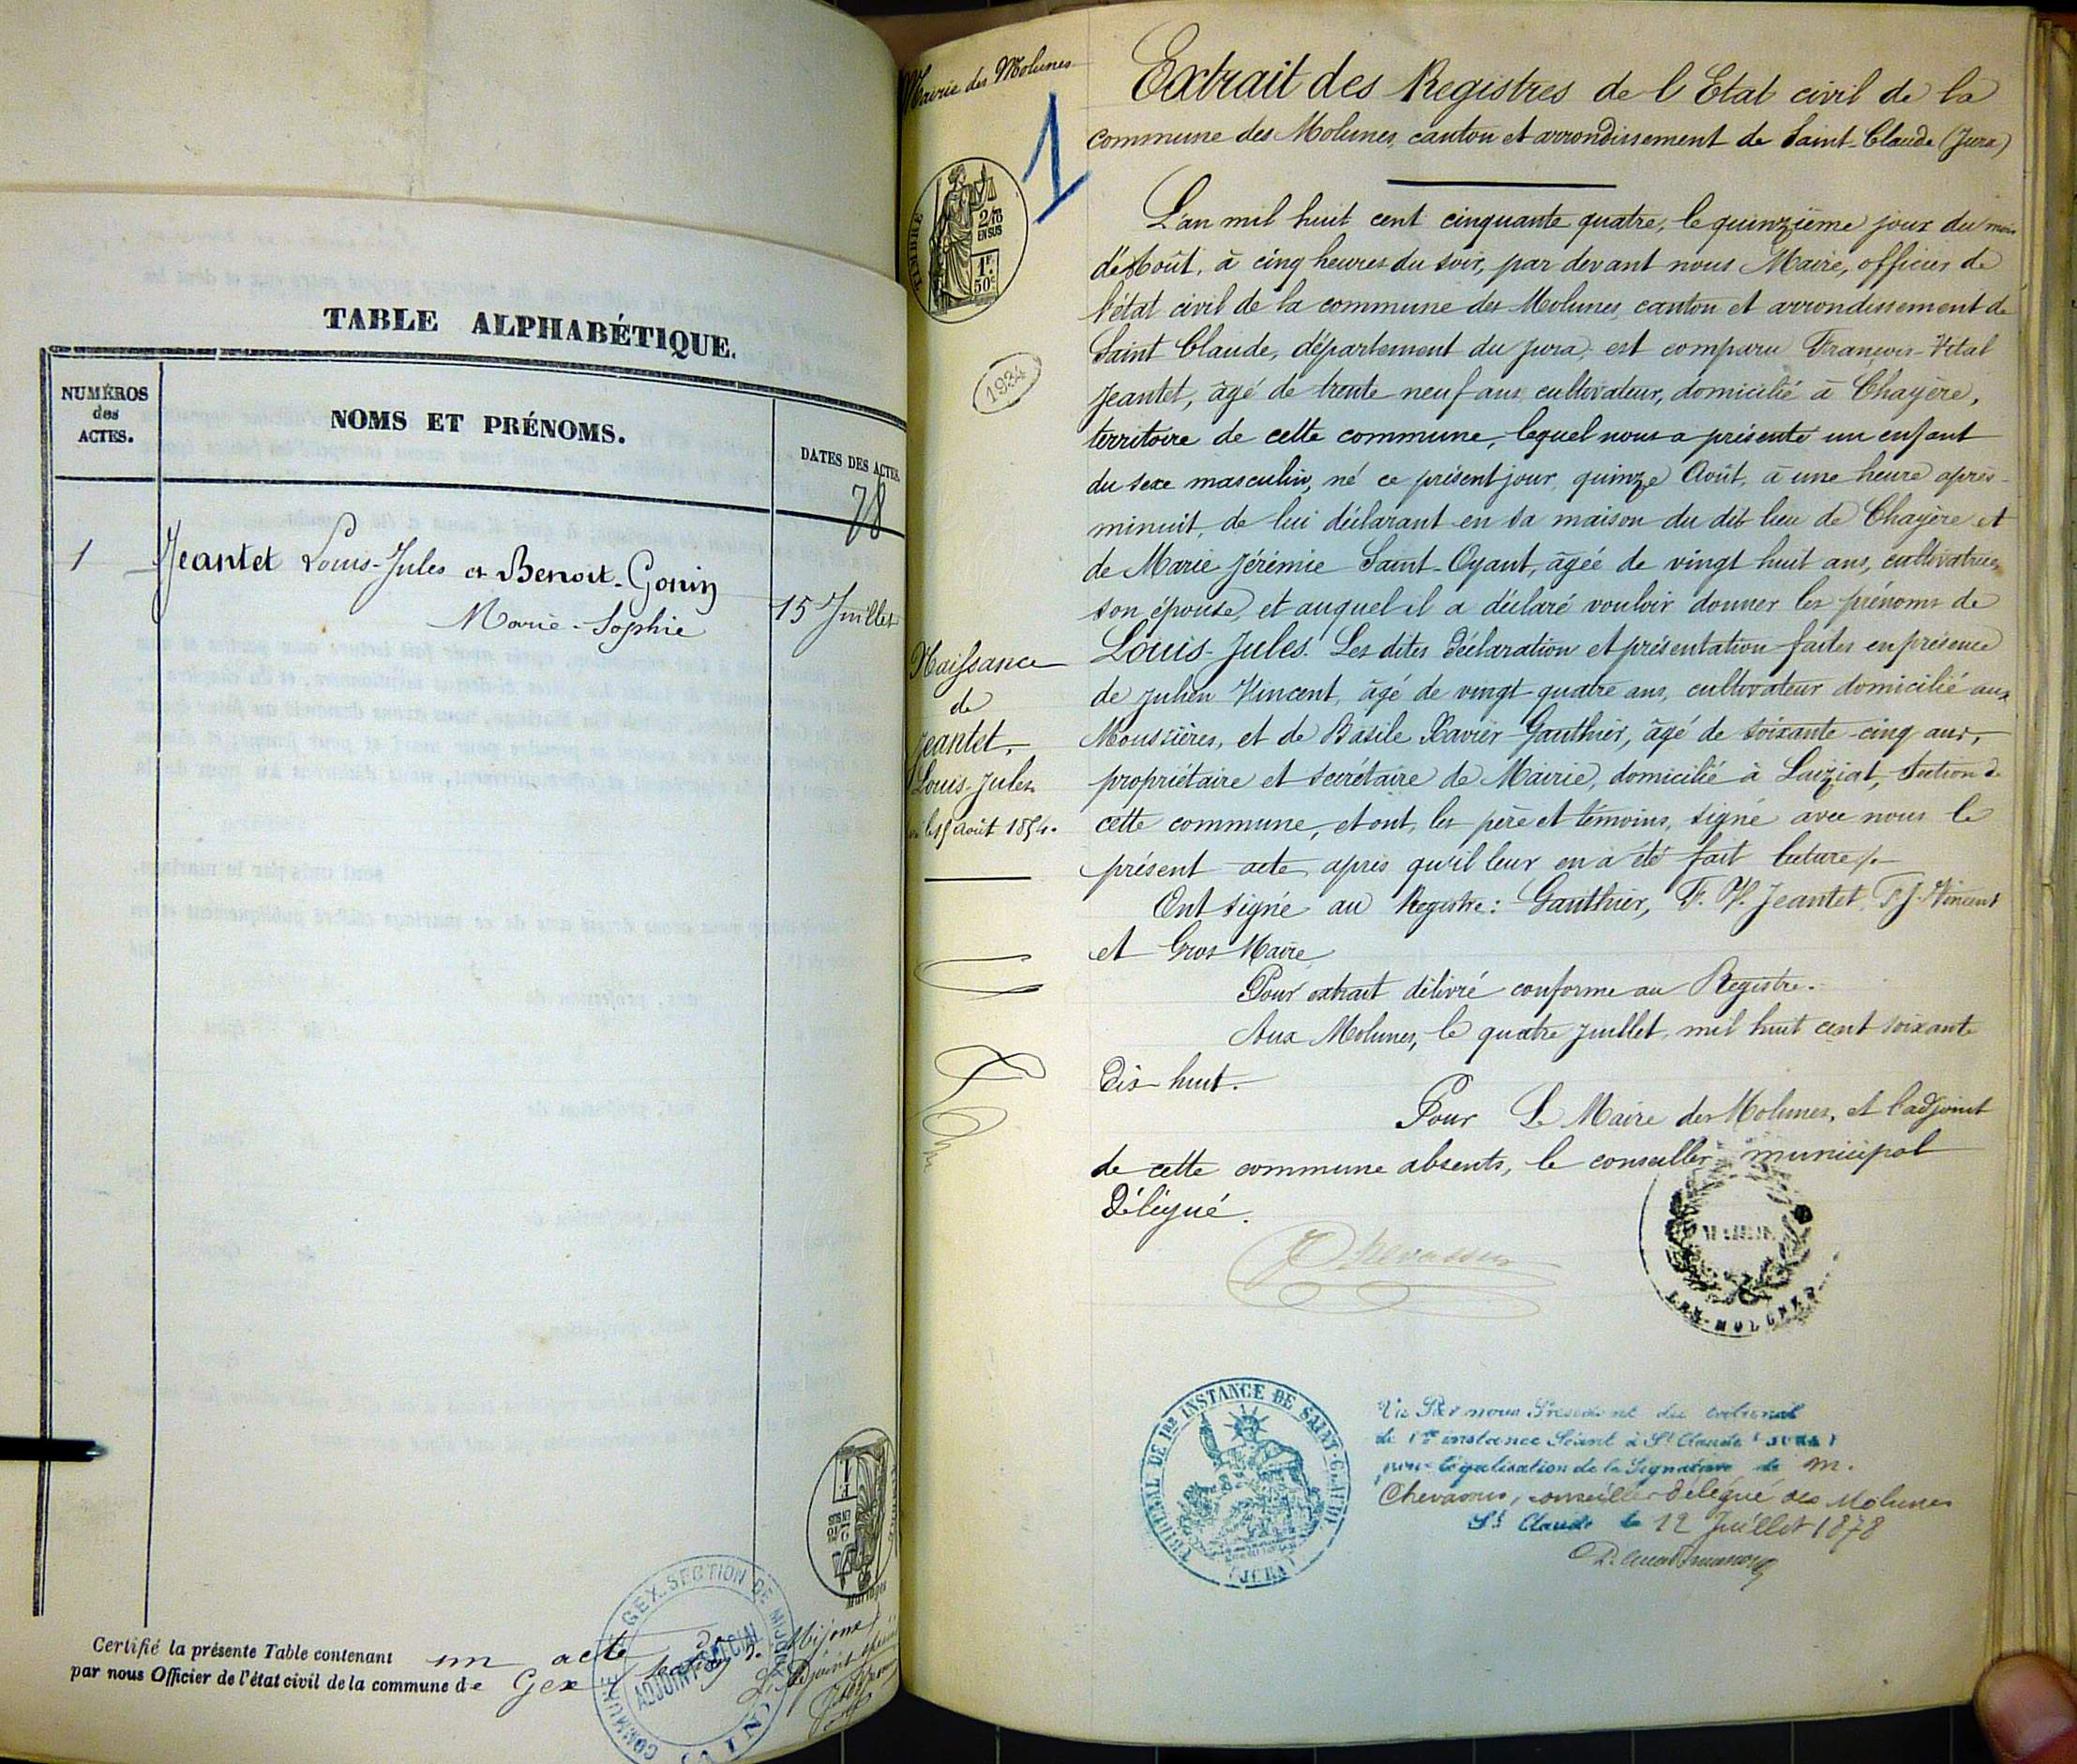 TABLE ALPHABÉTIQUE.
NUMÉROS
des
ACTES.
NOMS ET PRÉNOMS.
DATES DES ACTES.
78
1
Jeantet Louis-Jules et Benoit-Gonin
Marie-Sophie
15 Juillet
Certifié la présente Table contenant un acte
par nous Officier de l'état civil de la commune de Gex section de Mijoux
L'adjoint spécial
COMMUNE DE GEX. SECTION DE MIJOUX
ADJOINT SPÉCIAL
(AIN)
Mairie des Molunes
1
TIMBRE
2/10
EN SUS
1F.
50c.
1934
Extrait des Registres de l'Etat civil de la
commune des Molunes, canton et arrondissement de Saint-Claude (Jura)
L'an mil huit cent cinquante quatre, le quinzième jour du mois
d'Août, à cinq heures du soir, par devant nous Maire, officier de
l'état civil de la commune des Molunes, canton et arrondissement de
Saint Claude, département du Jura, est comparu François-Vital
Jeantet, âgé de trente neuf ans, cultivateur, domicilié à Chayère,
territoire de cette commune, lequel nous a présenté un enfant
du sexe masculin, né ce présent jour, quinze Août, à une heure après
minuit, de lui déclarant en sa maison du dit lieu de Chayère et
de Marie Jérémie Saint-Oyant, âgée de vingt huit ans, cultivatrice
son épouse, et auquel il a déclaré vouloir donner les prénoms de
Louis-Jules. Les dites déclaration et présentation faites en présence
de Julien Vincent, âgé de vingt quatre ans, cultivateur domicilié aux
Moussières, et de Basile Xavier Gauthier, âgé de soixante-cinq ans,
propriétaire et secrétaire de Mairie, domicilié à Laiziat, Section de
cette commune, et ont, les père et témoins, signé avec nous le
présent acte, après qu'il leur en a été fait lecture.
Ont signé au Registre: Gauthier, F. V. Jeantet, F. J. Vincent
et Gros Maire
Pour extrait délivré conforme au Registre.
Aux Molunes, le quatre Juillet, mil huit cent soixante
Dix-huit.
Pour Le Maire des Molunes, et l'adjoint
de cette commune absents, le conseiller municipal
Délégué.
Naissance
de
Jeantet,
Louis-Jules
né le 15 Août 1854.
Chevassus
MAIRIE
LES MOLUNES
TRIBUNAL DE 1RE INSTANCE DE SAINT-CLAUDE
(JURA)
Vu Par nous Président du tribunal
de 1re instance Séant à St Claude (JURA)
pour légalisation de la Signature de M.
Chevassus, conseiller délégué des Molunes
St Claude le 12 Juillet 1878